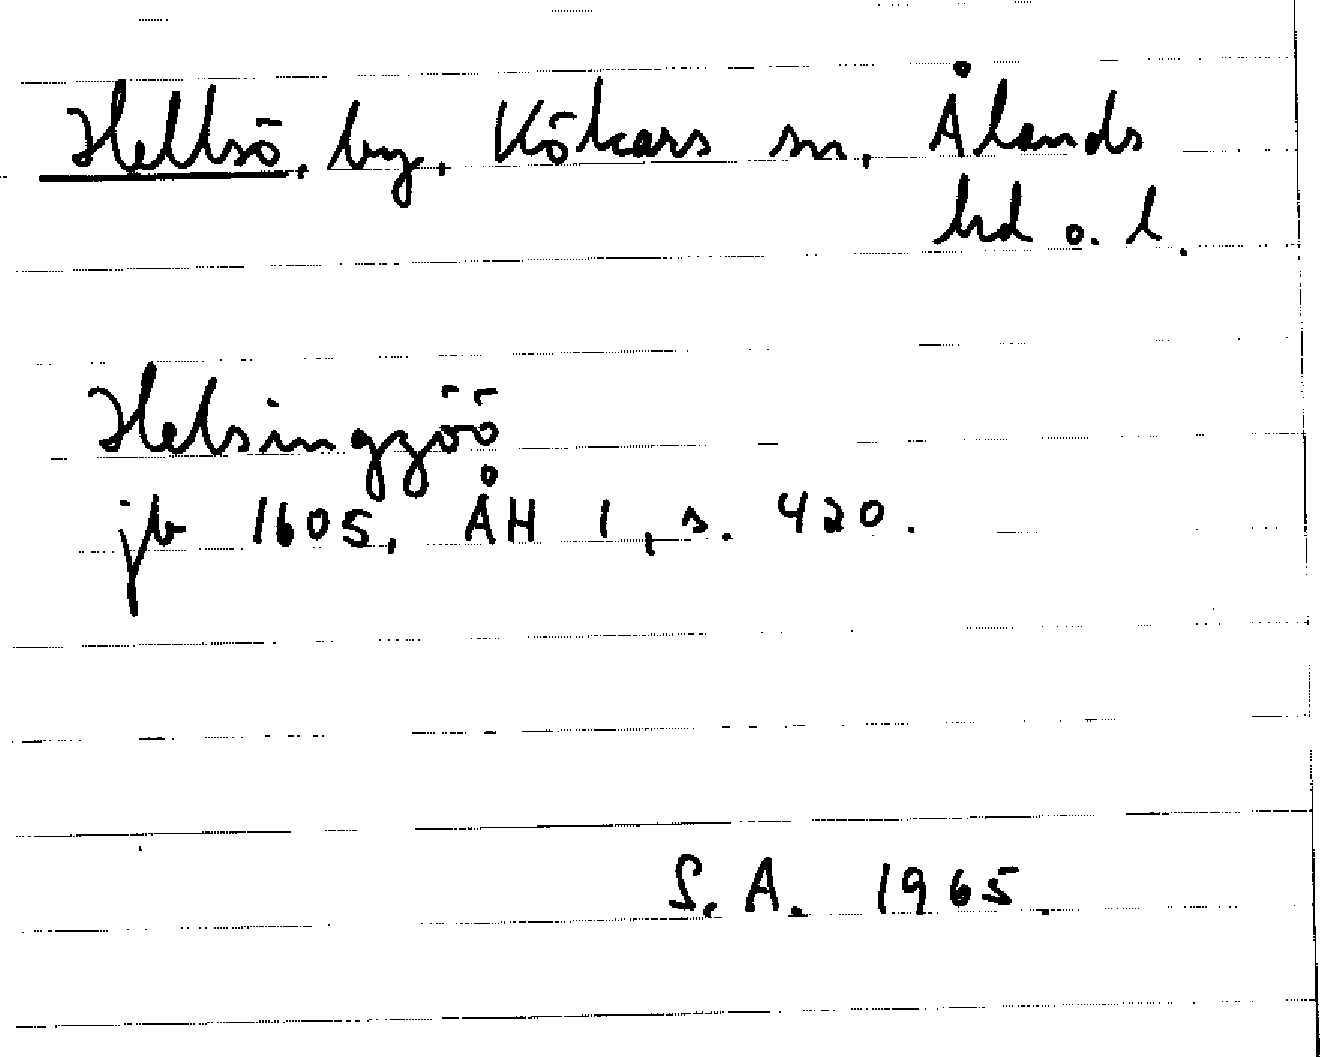 Hellsö, by, Kökars sn, Ålands
hd o. l.
Helsingzöö
jb 1605, ÅH 1, s. 420.
S. A. 1965.